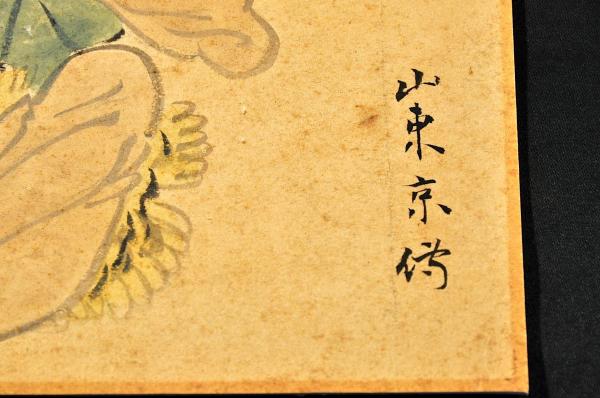 山東京傳